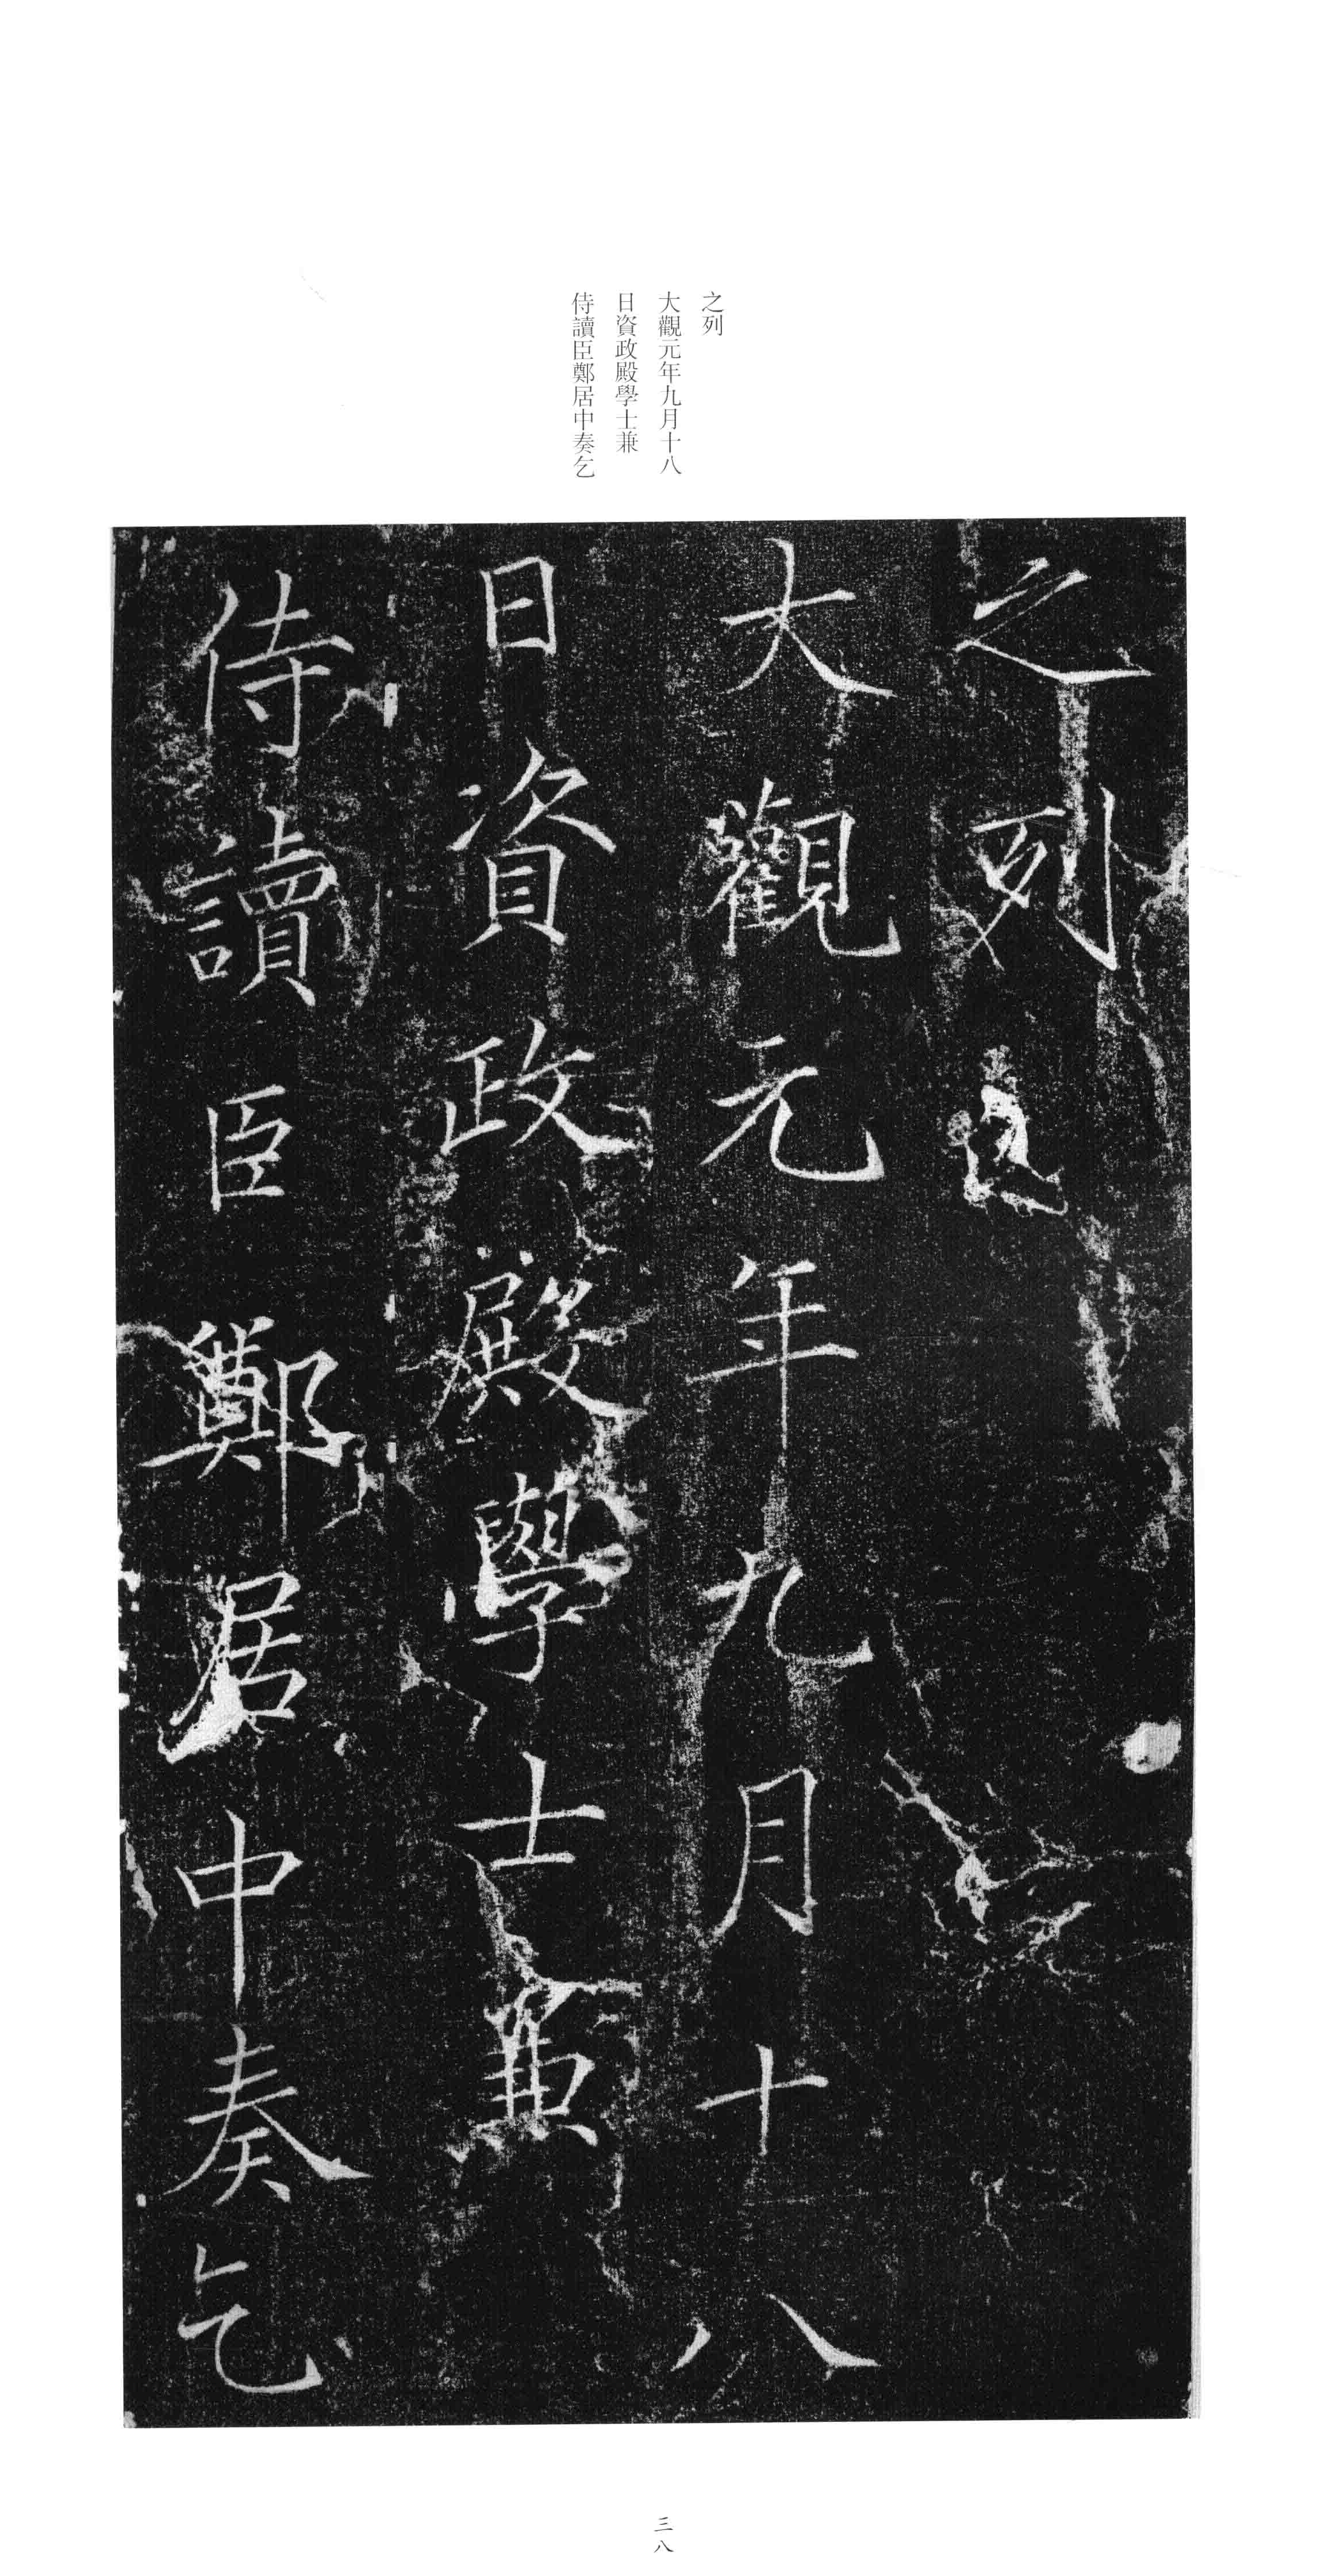 之列
大觀元年九月十八
日資政殿學士兼
侍讀臣鄭居中奏乞
之列
大觀元年九月十八
日資政殿學士兼
侍讀臣鄭居中奏乞
三八